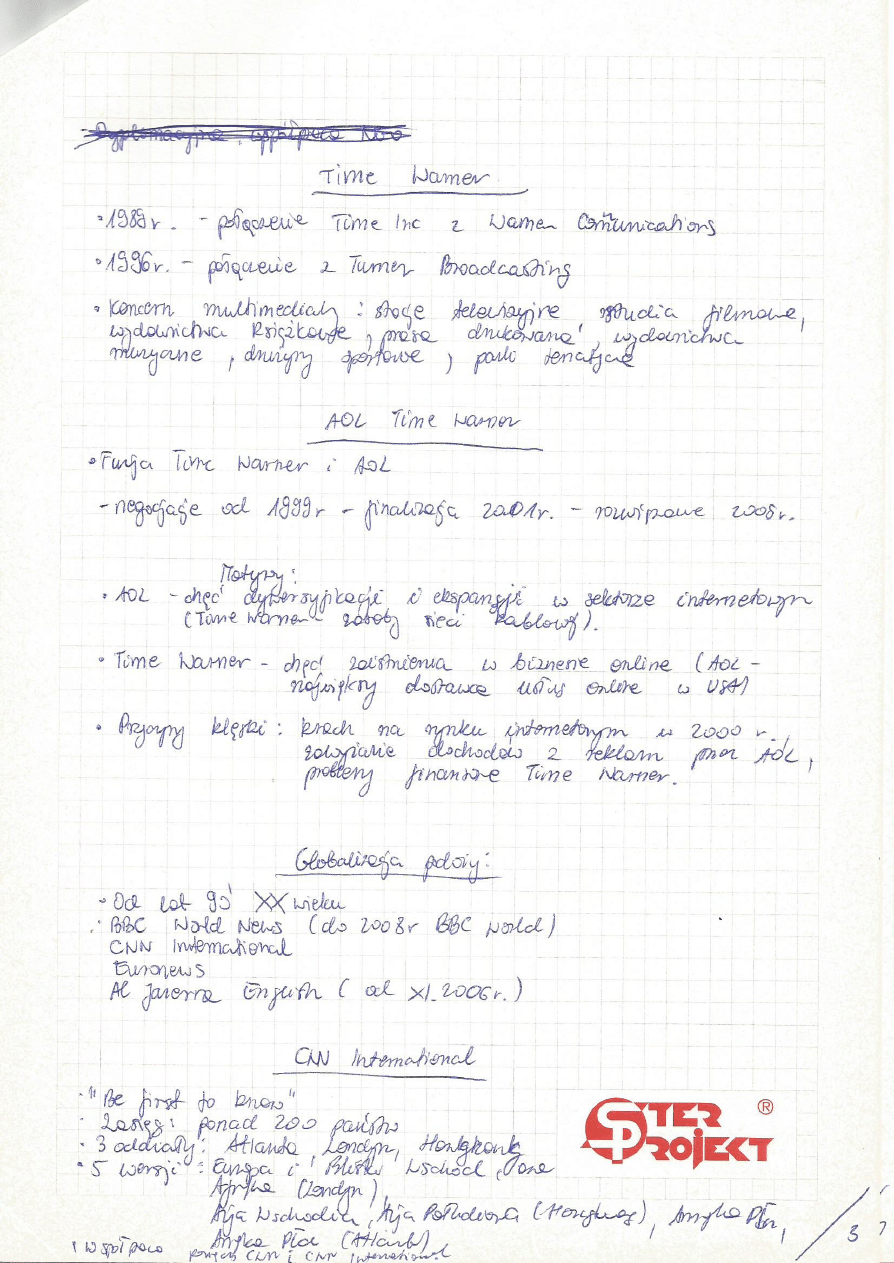 Dyplomacyjna, współpraca
Time Warner
• 1989r. - połączenie Time Inc z Warner Comunications
• 1996r. - połączenie z Turner Broadcasting
• koncern multimedialny : stacje telewizyjne, studia filmowe,
wydawnictwa książkowe, prasa drukowana, wydawnictwa
muzyczne, drużyny sportowe, parki tematyczne
AOL Time Warner
• Fuzja Time Warner i AOL
- negocjacje od 1999r - finalizacja 2001r. - rozwiązanie 2008r.
Motywy:
• AOL - chęć dywersyfikacji i ekspansji w sektorze internetowym
(Time Warner - zasoby sieci kablowej).
• Time Warner - chęć zaistnienia w biznesie online (AOL -
największy dostawca usług online w USA)
• Przyczyny klęski : krach na rynku internetowym w 2000 r.,
zawyżanie dochodów z reklam przez AOL,
problemy finansowe Time Warner.
Globalizacja :
• Od lat 90 XX wieku
• BBC World News (do 2008r BBC World)
CNN International
Euronews
Al Jazeera English ( od XI.2006r.)
CNN International
• "Be first to know"
• Zasięg : ponad 200 państw
• 3 oddziały : Atlanta, Londyn, Hongkong
• 5 wersji : Europa i Bliski Wschód,
Afryka (Londyn),
Azja Wschodnia, Azja Południowa (Hongkong), Ameryka Płn,
Ameryka Płd (Atlanta)
współpraca pomiędzy CNN i CNN International
STER PROJEKT ®
3